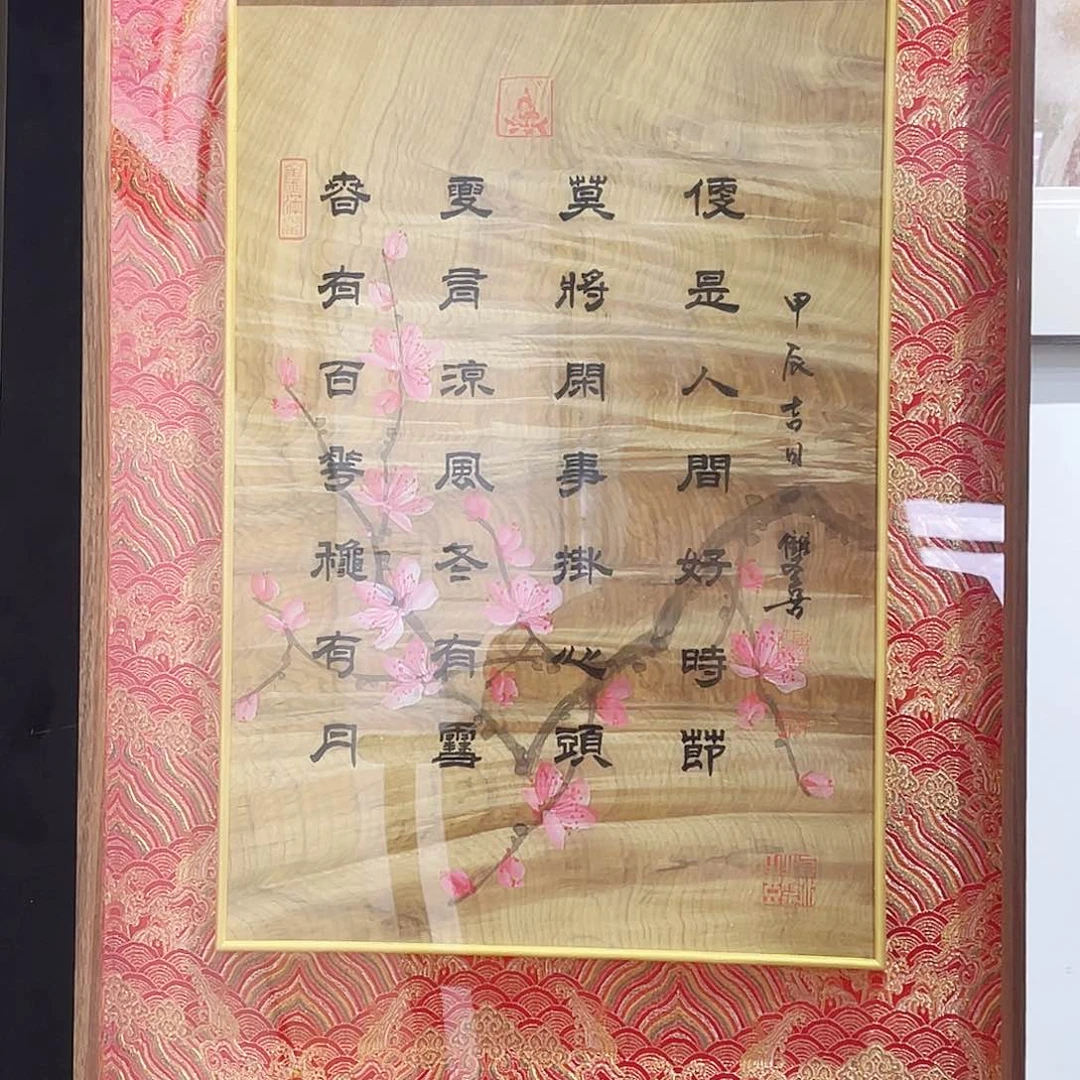 春有百花穐有月
夏有涼風冬有雪
莫將閑事掛心頭
便是人間好時節
甲辰吉日